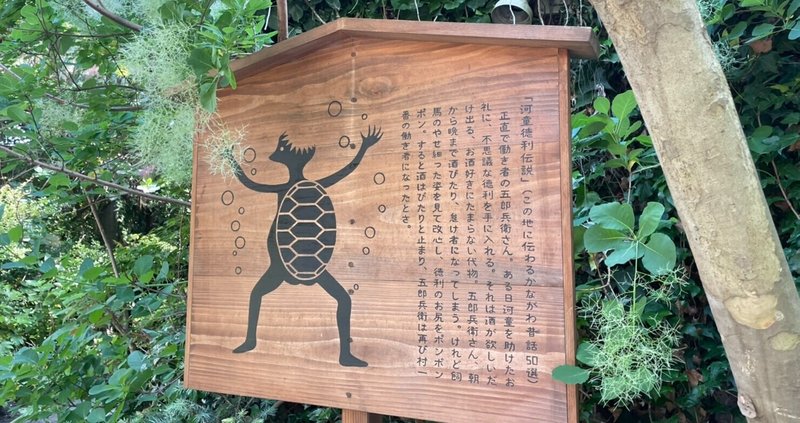 「河童徳利伝説」(この地に伝わるかながわ昔話50選)
正直で働き者の五郎兵衛さん。ある日河童を助けたお
礼に、不思議な徳利を手に入れる。それは酒が欲しいだ
け出る、お酒好きにたまらない代物。五郎兵衛さん、朝
から晩まで酒びたり、怠け者になってしまう。けれど飼
馬のやせ細った姿を見て改心し、徳利のお尻をポンポン
ポン。すると酒はぴたりと止まり、五郎兵衛は再び村一
番の働き者になったとさ。